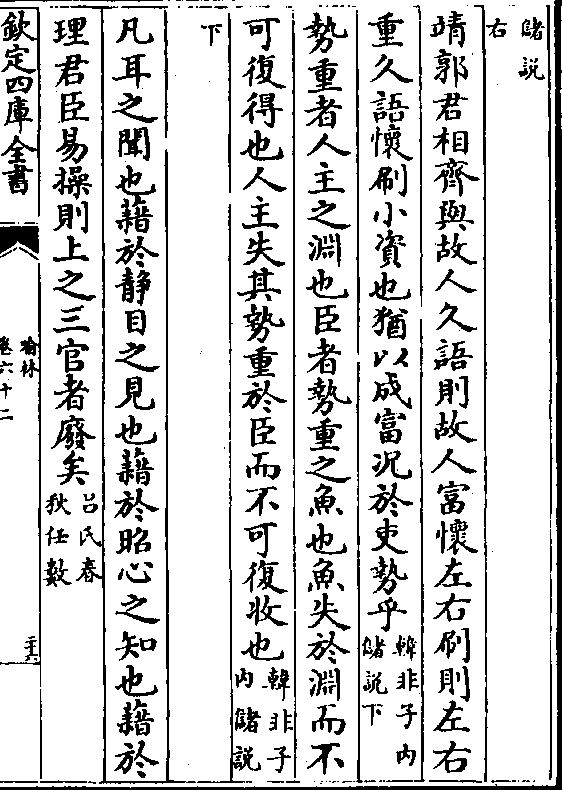 儲説
右
靖郭君相齊與故人久語則故人富懷左右刷則左右
重久語懷刷小資也猶以成富况於吏勢乎韓非子内
儲説下
勢重者人主之淵也臣者勢重之魚也魚失於淵而不
可復得也人主失其勢重於臣而不可復收也韓非子
内儲説
下
凡耳之聞也藉於静目之見也藉於昭心之知也藉於
理君臣易操則上之三官者廢矣吕氏春
秋任數
欽定四庫全書
喻林
卷六十二
三十六